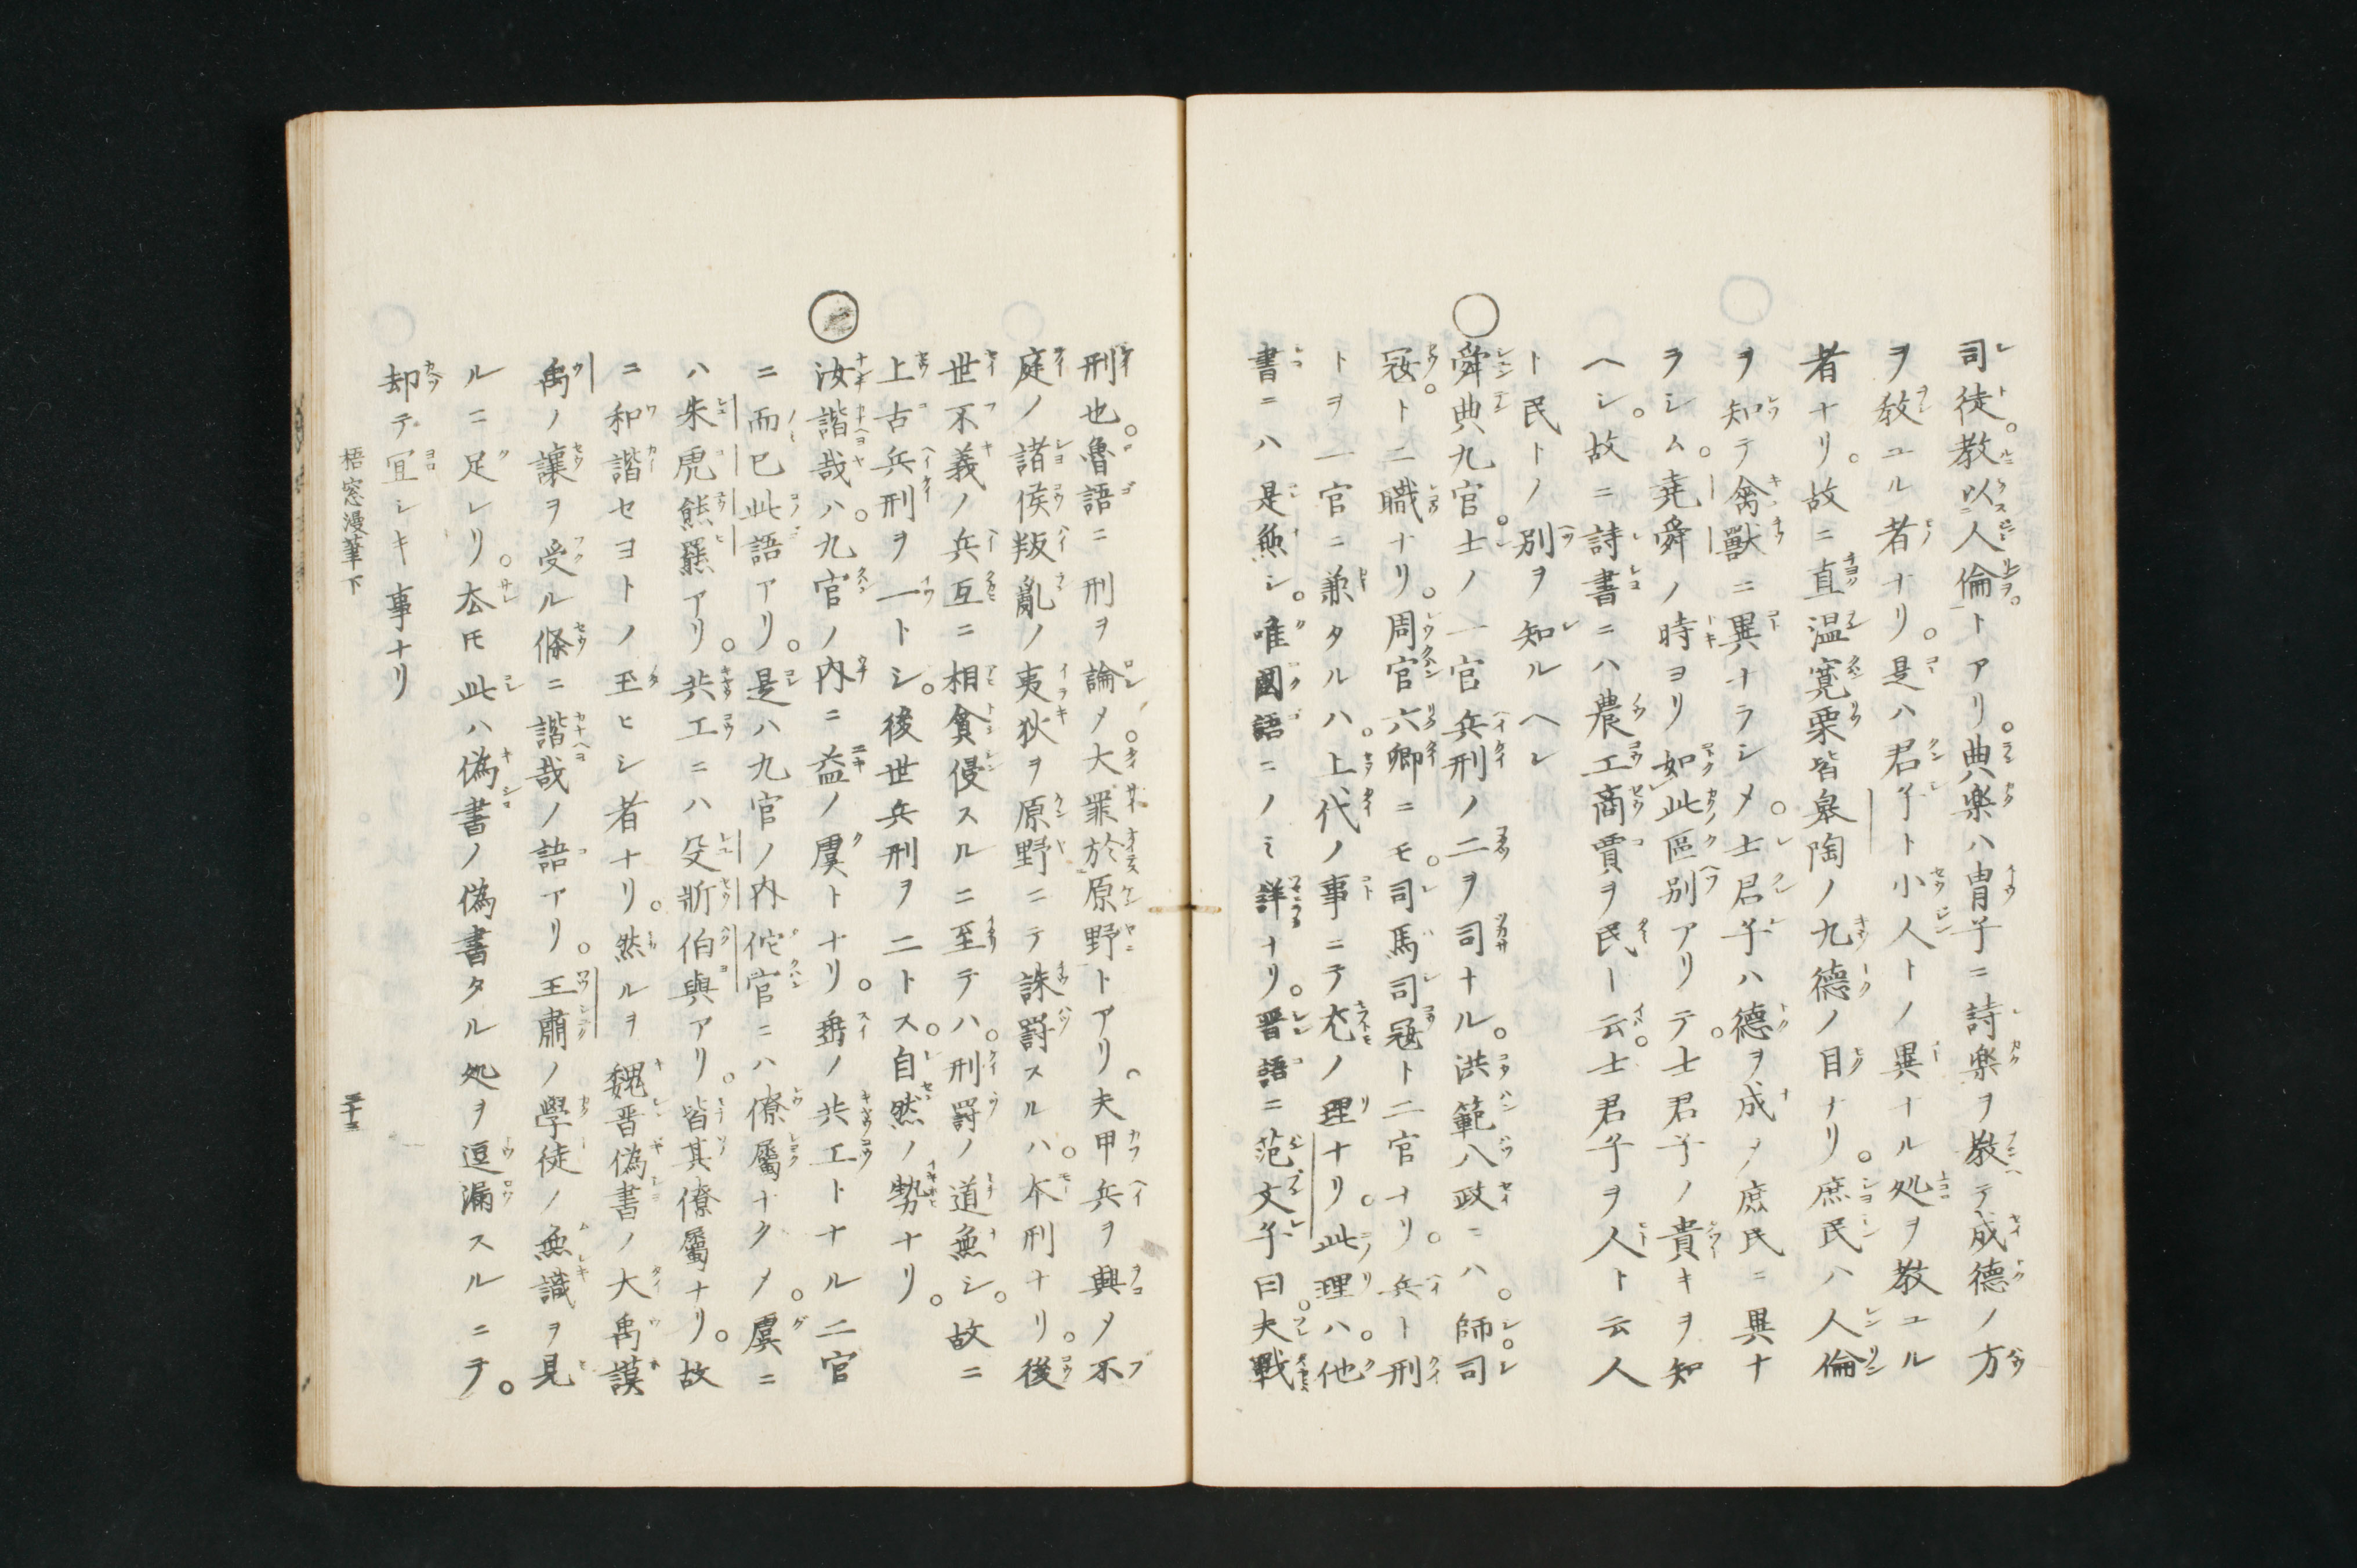 司徒。教以人倫トアリ。典楽ハ冑子ニ詩楽ヲ教テ成德ノ方
ヲ教ユル者ナリ。是ハ君子ト小人トノ異ナル処ヲ教ユル
者ナリ。故ニ直温寛栗皆皐陶ノ九德ノ目ナリ。庶民ハ人倫
ヲ知テ禽獸ニ異ナラシメ。士君子ハ德ヲ成メ庶民ニ異ナ
ラシム。堯舜ノ時ヨリ如此區別アリテ。士君子ノ貴キヲ知
ヘシ。故ニ詩書ニハ農工商賈ヲ民ト云。士君子ヲ人ト云人
ト民トノ別ヲ知ルヘシ
○舜典九官。士ノ一官兵刑ノ二ヲ司ナル。洪範八政ニハ。師司
寇。ト二職ナリ。周官六卿ニモ。司馬司寇ト二官ナリ。兵ト刑
トヲ一官ニ兼タルハ。上代ノ事ニテ尤ノ理ナリ。此理ハ。他
書ニハ是無シ。唯國語ニノミ詳ナリ。晋語ニ范文子曰。夫戰
刑也。魯語ニ刑ヲ論メ。大罪於原野トアリ。夫甲兵ヲ興メ不
庭ノ諸侯叛亂ノ夷狄ヲ原野ニテ誅罸スルハ。本刑ナリ。後
世不義ノ兵互ニ相貪侵スルニ至テハ。刑罸ノ道無シ。故ニ
上古兵刑ヲ一トシ。後世兵刑ヲ二トス。自然ノ勢ナリ。
○汝諧哉ハ。九官ノ内ニ益ノ虞トナリ。垂ノ共工トナル二官
ニ而已此語アリ。是ハ九官ノ内佗官ニハ僚屬ナクメ。虞ニ
ハ朱虎熊羆アリ。共工ニハ殳斨伯與アリ。皆其僚屬ナリ。故
ニ和諧セヨトノ玉ヒシ者ナリ。然ルヲ魏晋偽書ノ大禹謨
禹ノ讓ヲ受ル條ニ諧哉ノ語アリ。王肅ノ學徒ノ無識ヲ見
ルニ足レリ。厺𪜈此ハ偽書ノ偽書タル処ヲ逗漏スルニテ。
却テ冝シキ事ナリ
梧窓漫筆下
三十三